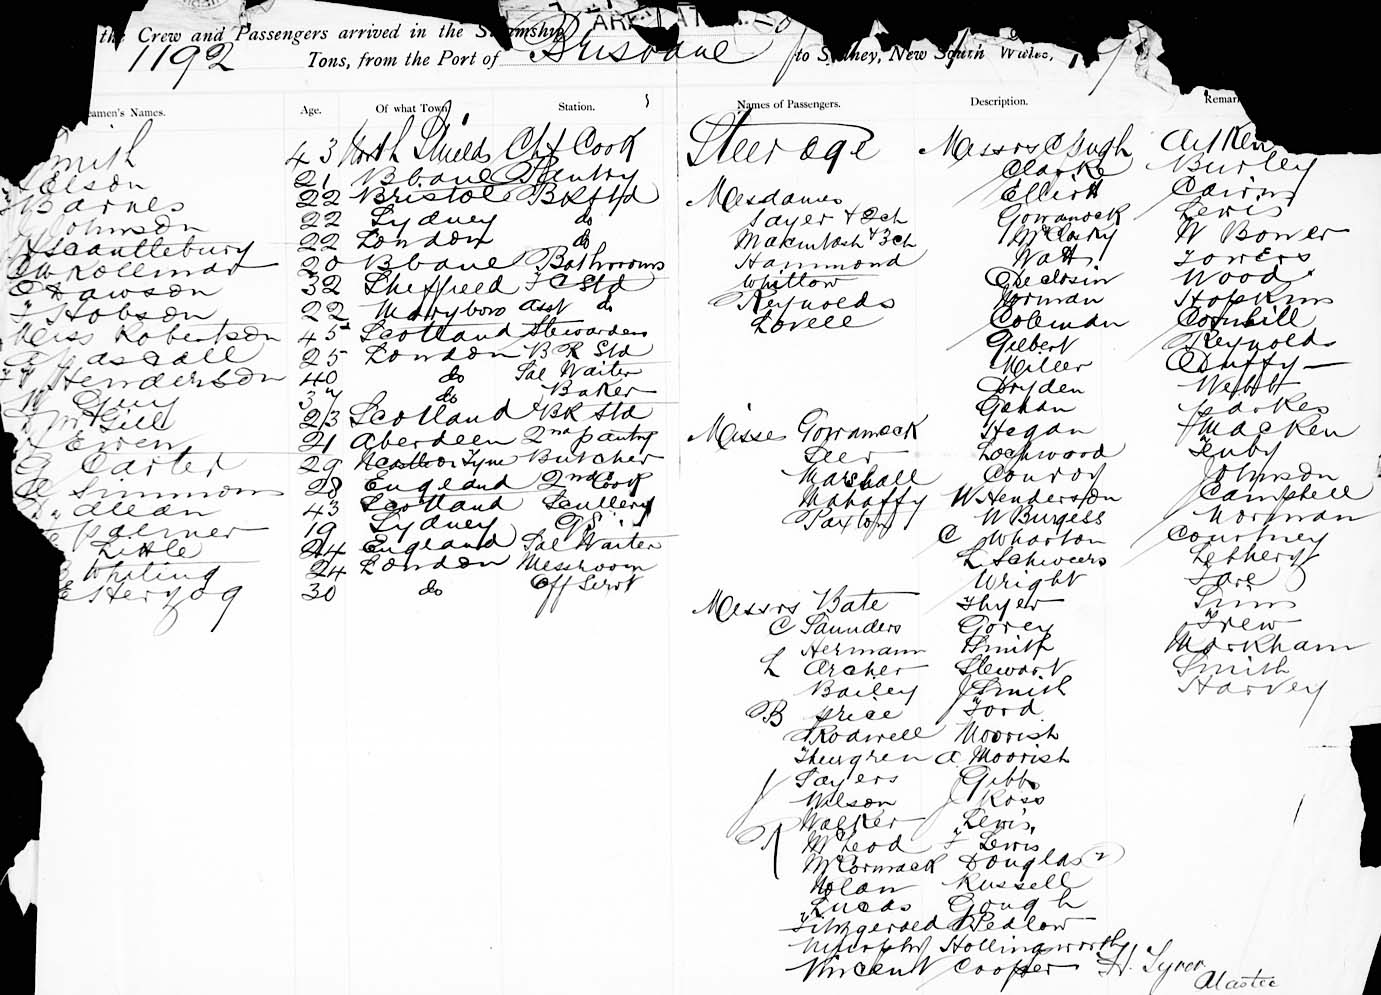 the Crew and Passengers arrived in the Steamship
1192 Tons, from the Port of Brisbane to Sydney, New South Wales,
Seamen's Names. Age. Of what Town Station. Names of Passengers. Description. Remarks
Smith 43 North Shields Chf Cook
Nelson 21 Bbane Pantry
Barnes 22 Bristol BR Std
Johnson 22 Sydney do
H Scantlebury 22 London do
Rollman 20 Bbane Bathrooms
Dawson 32 Sheffield F C Std
Hobson 22 Maryboro asst do
Miss Robertson 45 Scotland Stewardess
Maskall 25 London BR Std
Henderson 40 do Sal Waiter
Guy 37 do Baker
McGill 23 Scotland BR Std
Ewen 21 Aberdeen 2nd pantry
Carter 29 Ncastle on Tyne Butcher
Simmons 28 England 2nd Cook
Allan 43 Scotland Scullery
Palmer 19 Sydney G.S.
Little 24 England Sal Waiter
Whiting 24 London Messroom
E Herzog 30 do Off Servt
Steerage
Mesdames
Sayer + 2ch
Makintosh + 3ch
Hammond
Whitlow
Reynolds
Lovell
Misses Gorramock
Deer
Marshall
Mahaffy
Paxton
Messrs Bate
C Saunders
Hermann
L Archer
Bailey
B Price
Rodwell
Theurgren
J Sayers
Wilson
Walker
McLeod
McCormack
Nolan
Lucas
Fitzgerald
Murphy
Vincent
Messrs Clough
Clarke
Elliott
Gorramock
McClasky
Watt
Declosin
Norman
Coleman
Gilbert
Miller
Dryden
Gahan
Hegan
Lockwood
Conroy
W Henderson
W Burgess
C Wharton
L Schweers
Wright
Thyer
Gorey
Smith
Stewart
J Smith
Ford
Moorish
A Moorish
Gibbs
J Ross
Lewis
F Lewis
Douglas
Russell
Gough
Pedlow
Hollingworth
Cooper
Aitken
Burley
Cairns
Lewis
W Bower
Towers
Wood
Hopkins
Cornhill
Reynolds
Duffy
Webb
Parkes
Macken
Tuby
Johnson
Campbell
Norman
Courtney
Lethery
Tare
Sims
Trew
Markham
Smith
Harvey
H. Tyrer
Master